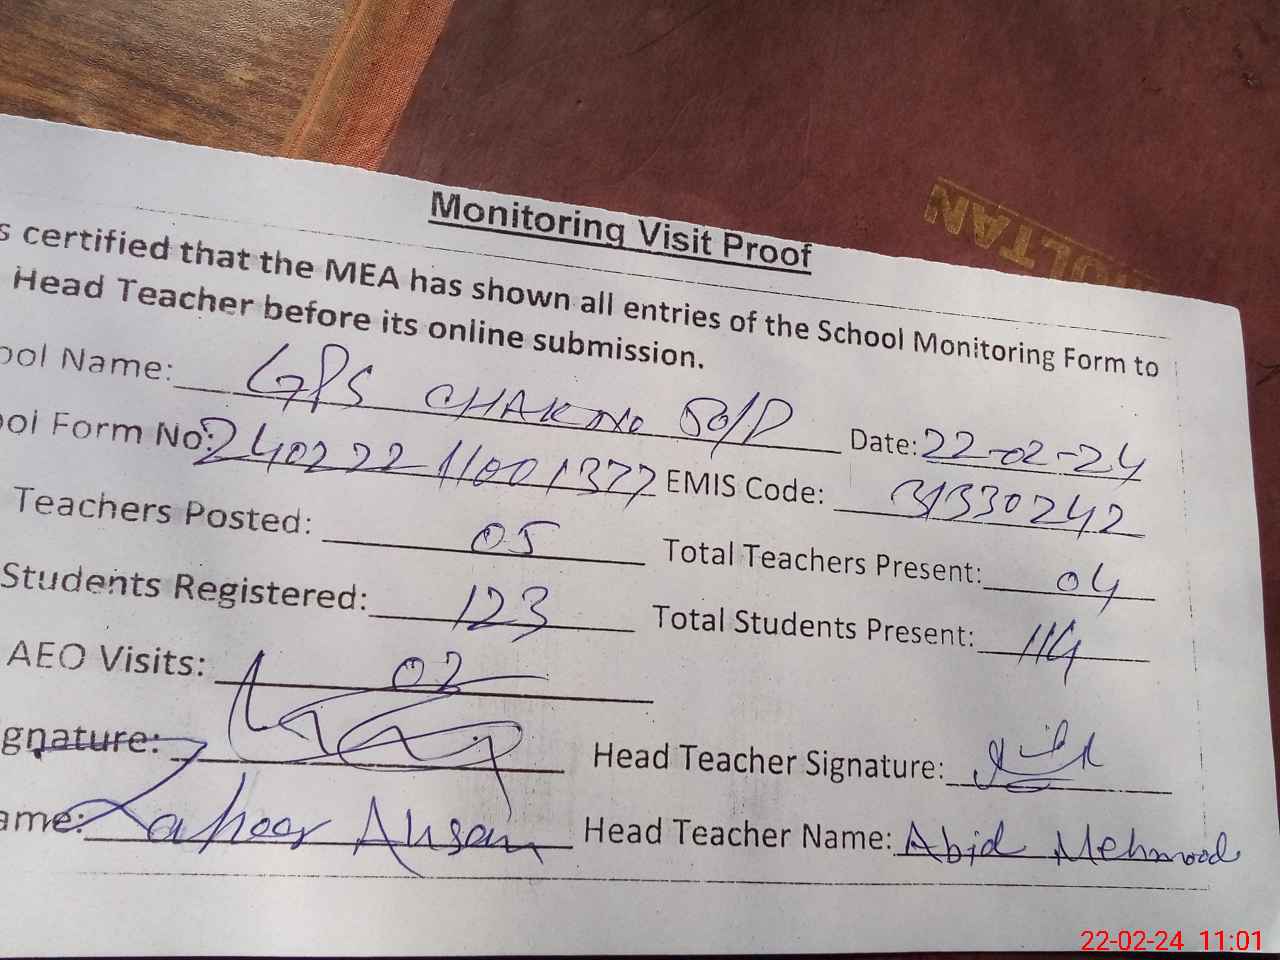 MULTAN
Monitoring Visit Proof
s certified that the MEA has shown all entries of the School Monitoring Form to
Head Teacher before its online submission.
ool Name: GPS CHAK No 50/D Date: 22-02-24
ool Form No: 24022211001377 EMIS Code: 31330242
Teachers Posted: 05 Total Teachers Present: 04
Students Registered: 123 Total Students Present: 114
AEO Visits: 02
gnature: Head Teacher Signature:
ame: Zahoor Ahsan Head Teacher Name: Abid Mehmood
22-02-24 11:01